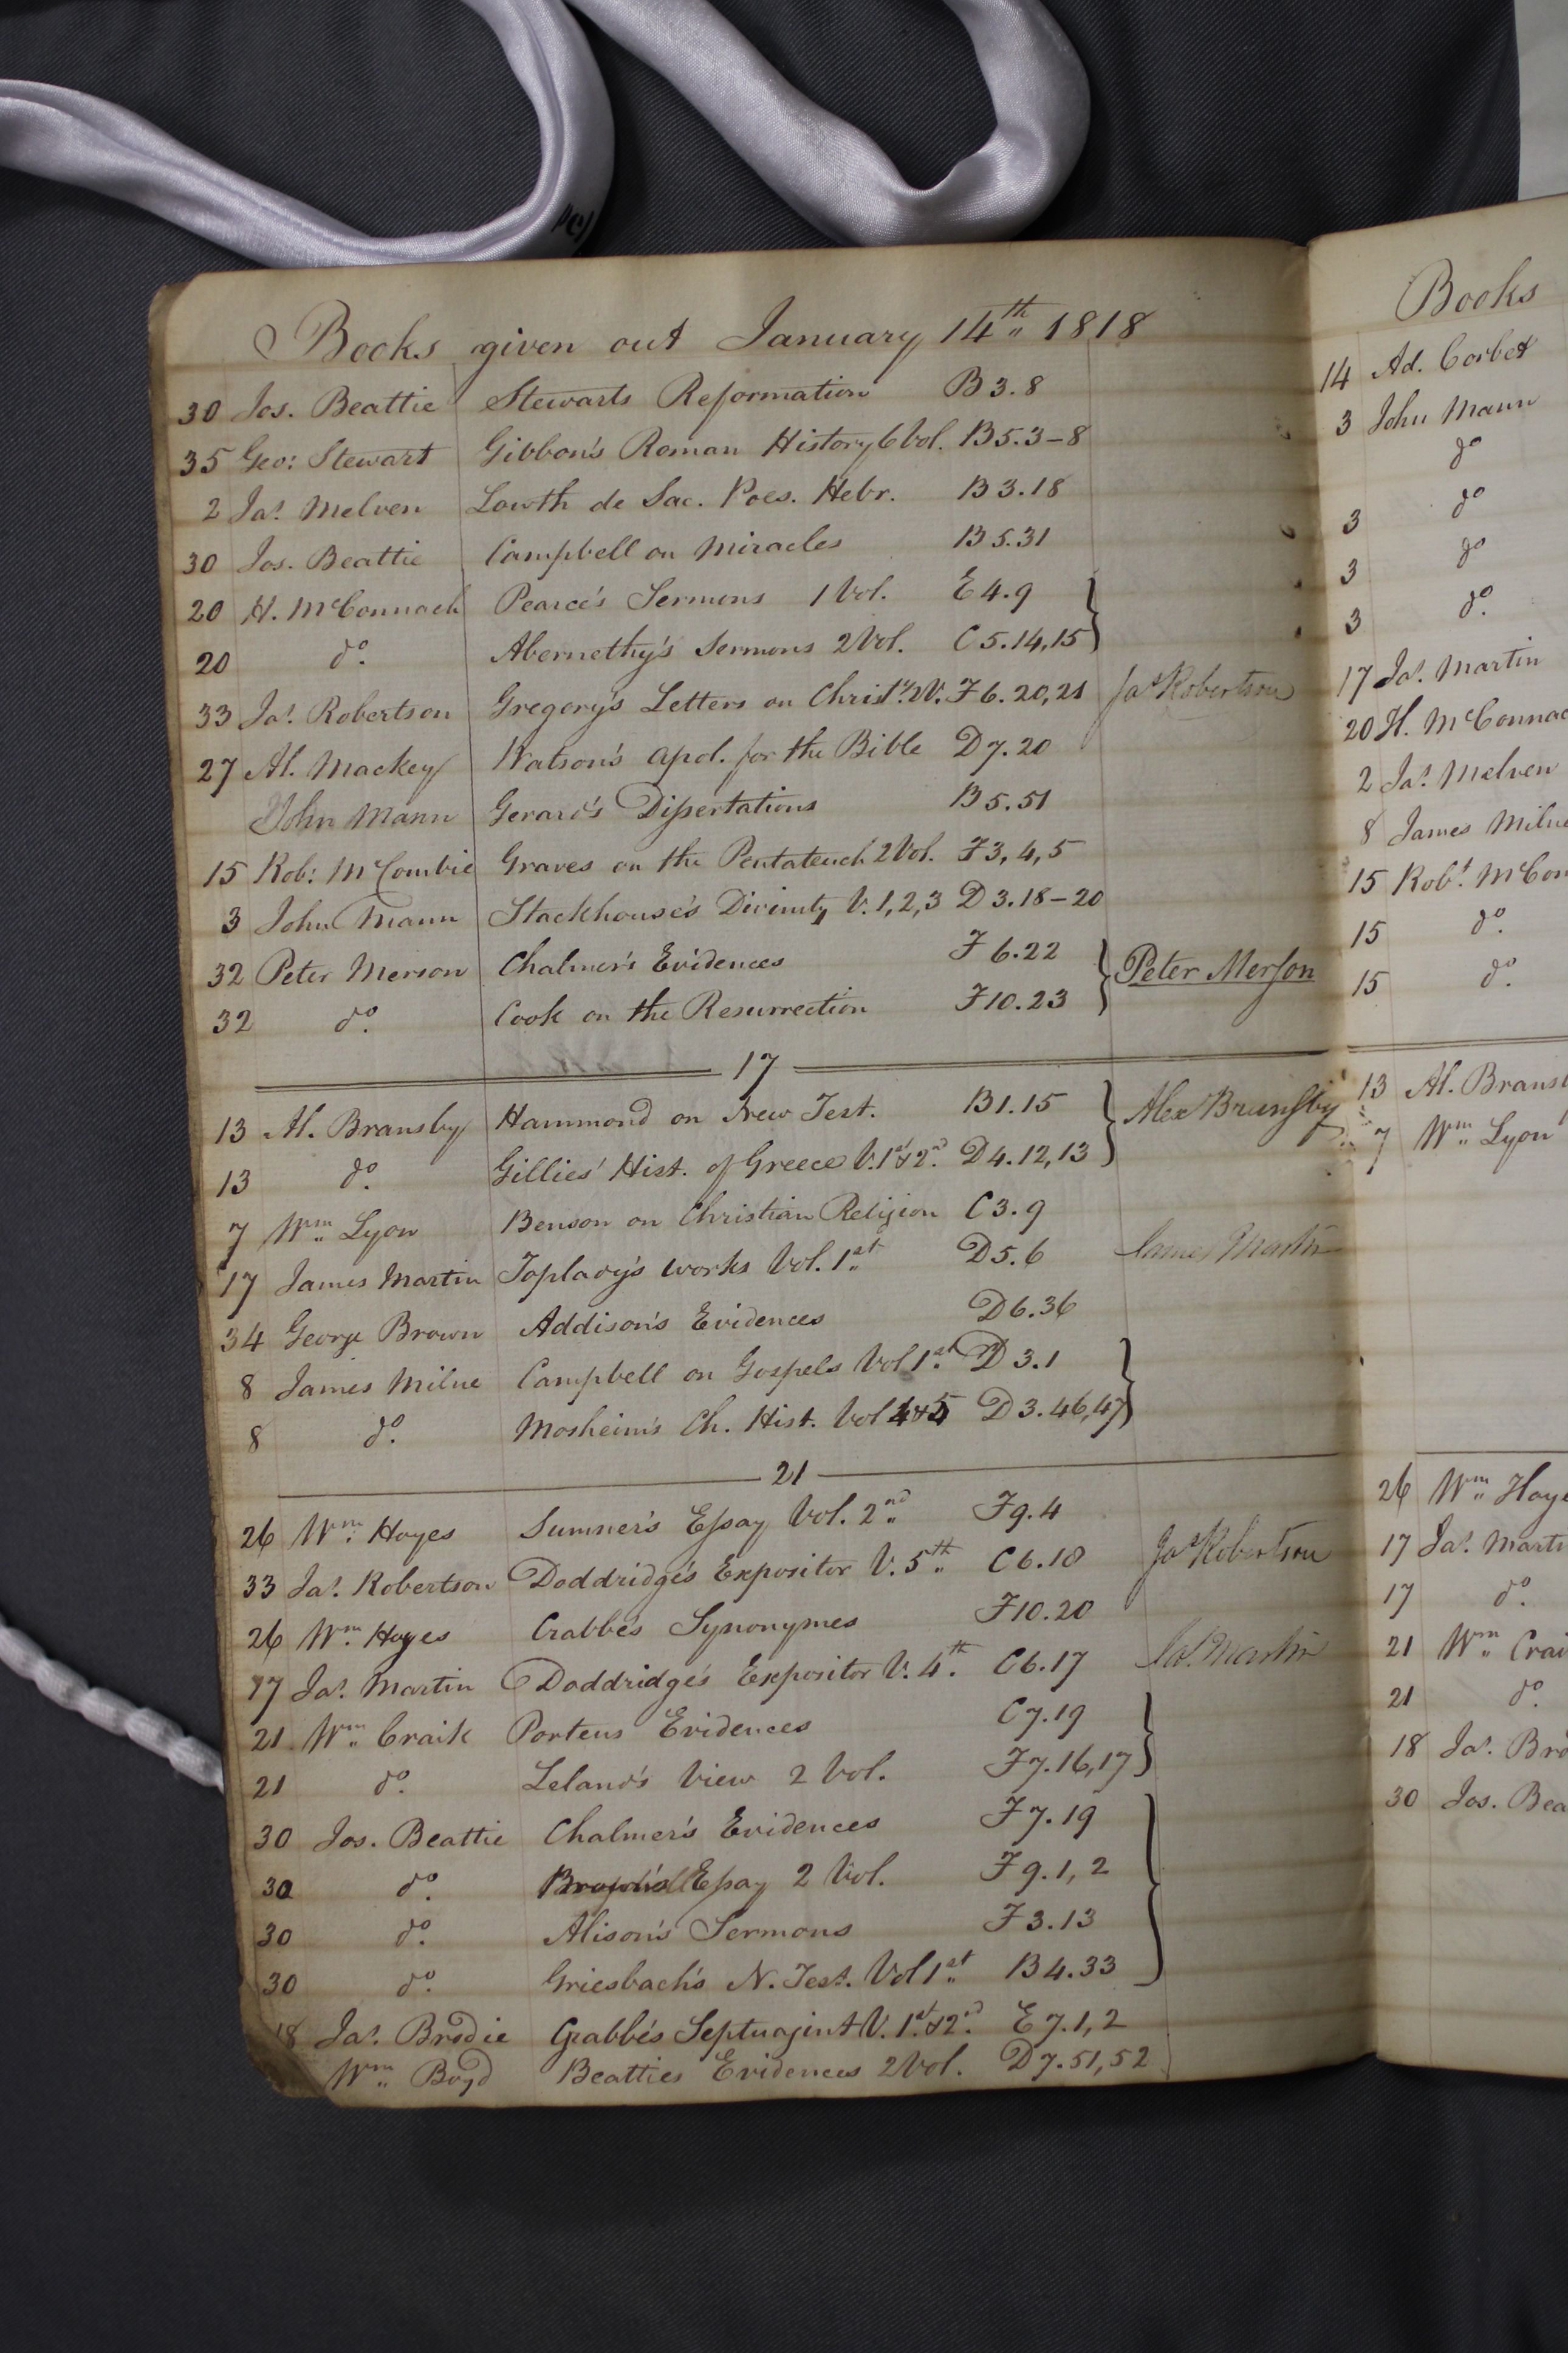 Books given out January 14th 1818
30 Jos. Beattie Stewarts Reformation B 3.8
35 Geo: Stewart Gibbon's Roman History 6 Vol. B 5.3-8
2 Jas. Melven Lowth de Sac. Poes. Hebr. B 3.18
30 Jos. Beattie Campbell on Miracles B 5.31
20 H. McConnach Pearce's Sermons 1 Vol. E 4.9
20 do. Abernethy's Sermons 2 Vol. C 5.14,15
33 Jas. Robertson Gregory's Letters on Christy. 2 V. F 6.20,21 Jas Robertson
27 Al. Mackey Watson's Apol. for the Bible D 7.20
John Mann Gerard's Dissertations B 5.51
15 Rob: McCombie Graves on the Pentateuch 2 Vol. F 3,4,5
3 John Mann Stackhouse's Divinity V. 1,2,3 D 3.18-20
32 Peter Merson Chalmer's Evidences F 6.22 Peter Merson
32 do. Cook on the Resurrection F 10.23
17
13 Al. Bransby Hammond on New Test. B 1.15 Alex Brunsby
13 do. Gillies' Hist. of Greece V. 1st & 2nd. D 4.12,13
7 Wm Lyon Benson on Christian Religion C 3.9
17 James Martin Toplady's works Vol. 1st D 5.6 James Martin
34 George Brown Addison's Evidences D 6.36
8 James Milne Campbell on Gospels Vol 1st D 3.1
8 do. Mosheim's Ch. Hist. Vol 4 & 5 D 3.46,47
21
26 Wm. Hoyes Sumner's Essay Vol. 2nd F 9.4
33 Jas. Robertson Doddridge's Expositor V. 5th C 6.18 Jas Robertson
26 Wm. Hoyes Crabbe's Synonymes F 10.20
17 Jas. Martin Doddridge's Expositor V. 4th. C 6.17 Jas. Martin
21 Wm Craik Porteus Evidences C 7.19
21 do. Leland's View 2 Vol. F 7.16,17
30 Jos. Beattie Chalmer's Evidences F 7.19
30 do. Essay 2 Vol. F 9.1,2
30 do. Alison's Sermons F 3.13
30 do. Griesbach's N. Test. Vol 1st B 4.33
18 Jas. Brodie Grabbe's Septuagint V. 1st. & 2d. E 7.1,2
Wm Boyd Beatties Evidences 2 Vol. D 7.51,52
Books
14 Ad. Corbet
3 John Mann
do
3 do
3 do
3 do.
17 Jas. Martin
20 H. McConnac
2 Jas. Melven
8 James Milne
15 Robt. McCom
15 do.
15 do.
13 Al. Bransb
7 Wm Lyon
26 Wm Hoye
17 Jas. Marti
17 do.
21 Wm Crai
21 do.
18 Jas. Bro
30 Jos. Bea